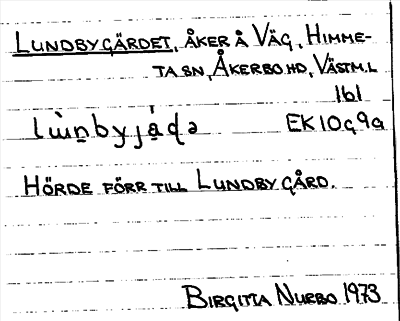 LUNDBYGÄRDET, ÅKER Å VÄG, HIMME-
TA SN, ÅKERBO HD, VÄSTM.L
1b1
EK 10g9a
HÖRDE FÖRR TILL LUNDBY GÅRD.
BIRGITTA NURBO 1973